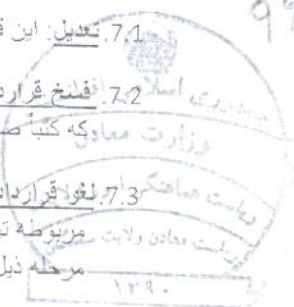 7.1. تعدیل: این ق
7.2. فسخ قرارد
که کتباً ص
7.3. لغو قرارداد
مربوطه ت
مرحله ذیل
جمهوری اسلامی
وزارت معادن
ریاست هماهنگی
ریاست معادن ولایت
۱۳۹۰